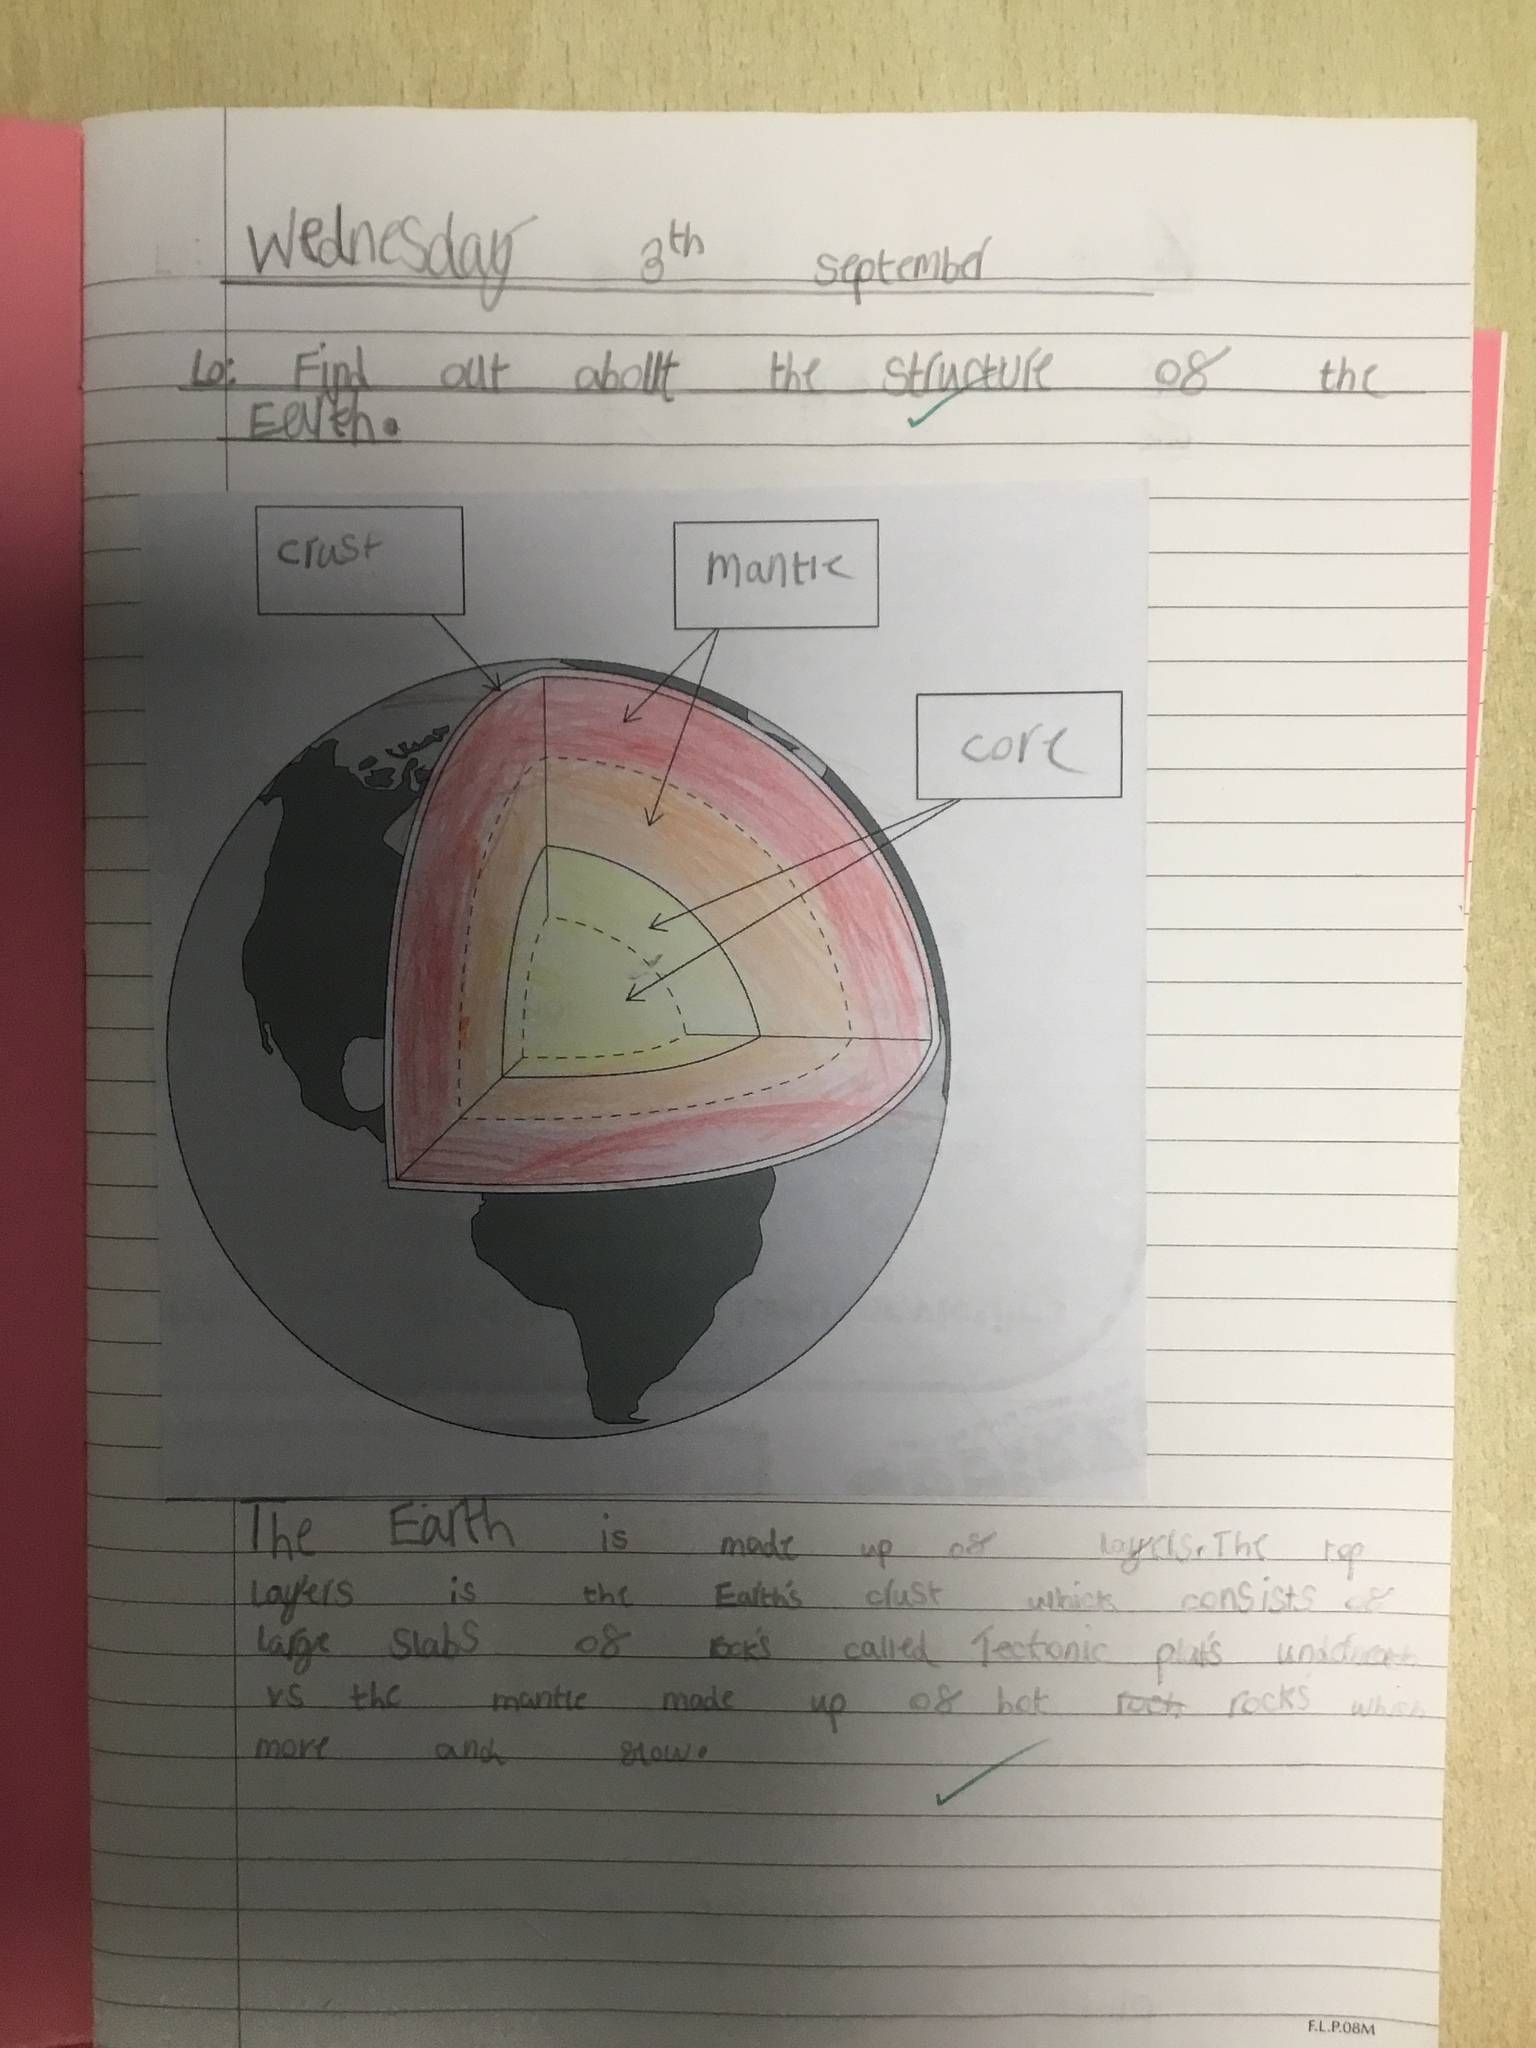 Wednesday 3th September
Lo: Find out about the structure of the
Earth.
crust
mantle
core
The Earth is made up of layers. The top
layers is the Earth's crust which consists of
large slabs of rocks called Tectonic plats
vs the mantle made up of hot rock rocks which
more and slow.
F.L.P.08M